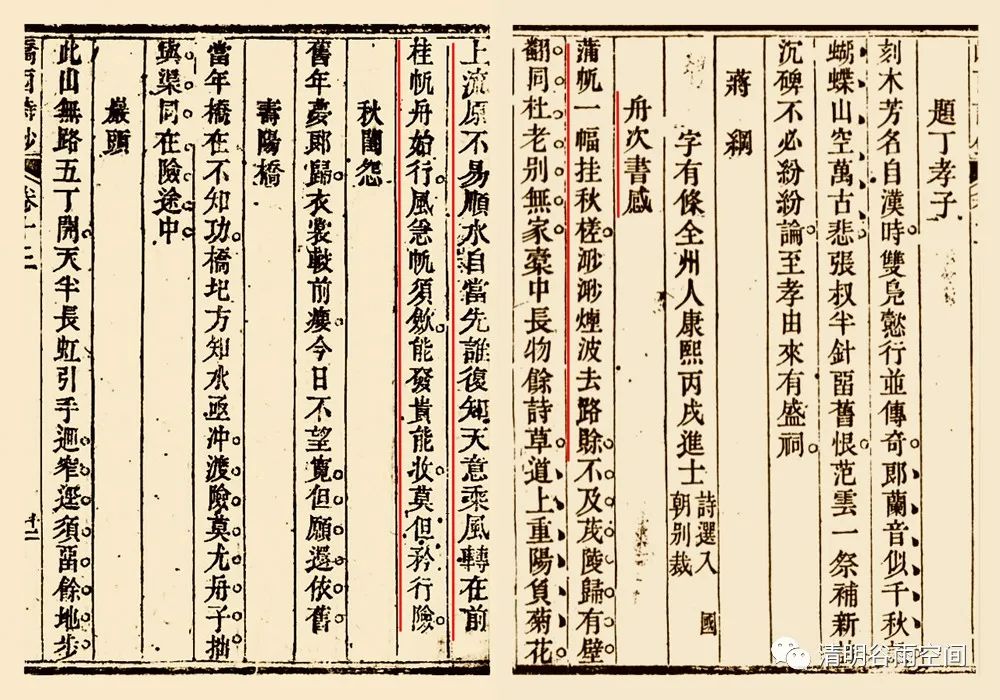 題丁孝子
刻木芳名自漢時雙鳧懿行並傳奇郎蘭音似千秋
蝴蝶山空萬古悲張叔半針留舊恨范雲一祭補新
沉碑不必紛紛論至孝由來有盛祠
蔣綱
字有條全州人康熙丙戌進士詩選入國朝別裁
舟次書感
蒲帆一幅挂秋槎渺渺煙波去路賒不及茂陵歸有壁
翻同杜老別無家橐中長物餘詩草道上重陽負菊花
上流原不易順水自當先誰復知天意乘風轉在前
桂帆舟始行風急帆須歛能發貴能收莫但矜行險
秋閨怨
舊年夢郎歸衣裳較前瘦今日不望寬但願還依舊
壽陽橋
當年橋在不知功橋圯方知水亟冲渡險莫尤舟子拙
與渠同在險途中
巖頭
此山無路五丁開天半長虹引手迴窄逕須留餘地步
西詩鈔 卷十二
清明谷雨空间